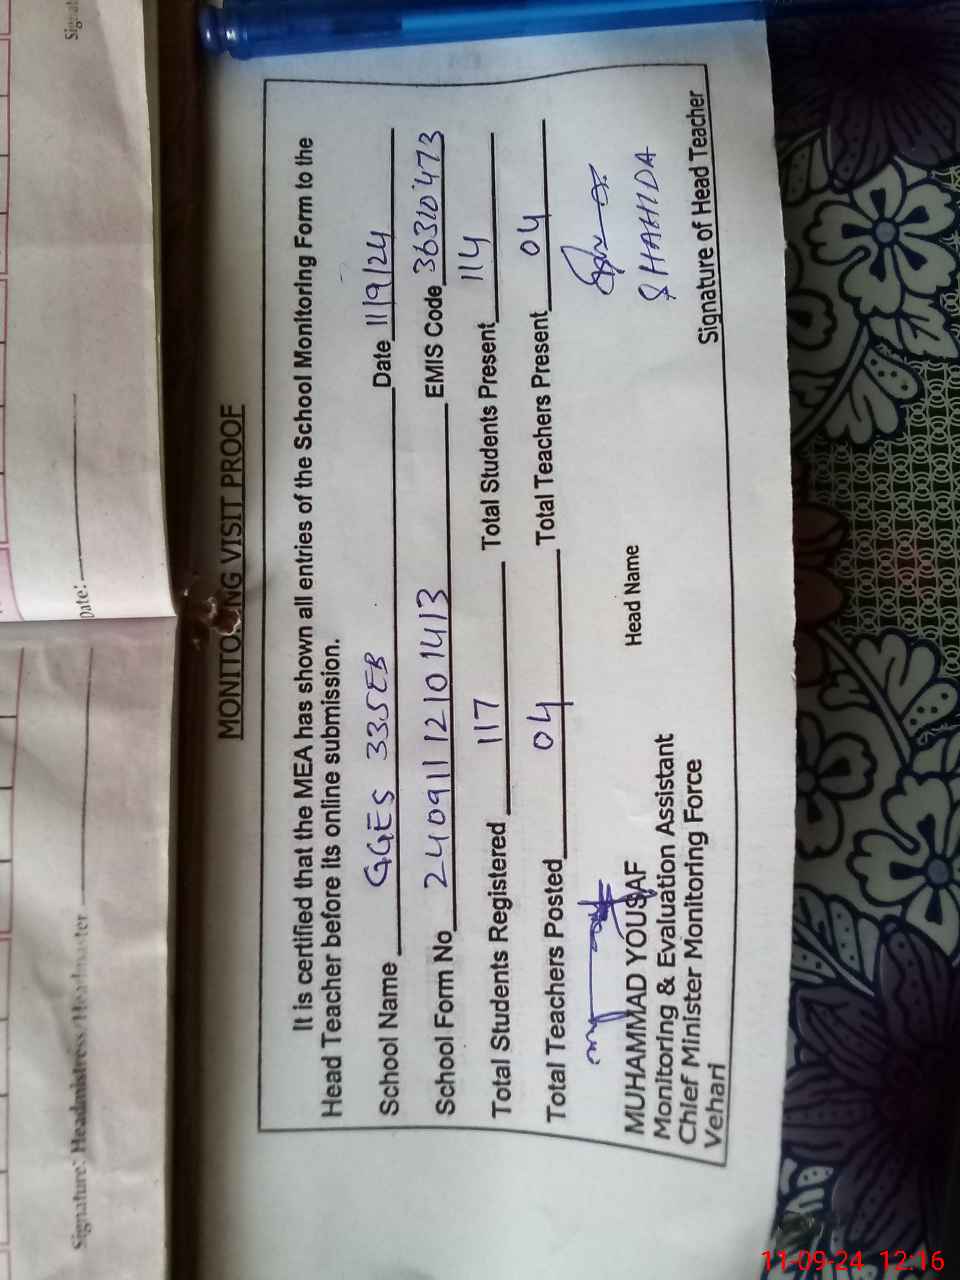 MONITORING VISIT PROOF
It is certified that the MEA has shown all entries of the School Monitoring Form to the
Head Teacher before its online submission.
School Name GGES 335EB Date 11/9/24
School Form No 24091112101413 EMIS Code 36310473
Total Students Registered 117 Total Students Present 114
Total Teachers Posted 04 Total Teachers Present 04
MUHAMMAD YOUSAF Head Name SHAHIDA
Monitoring & Evaluation Assistant
Chief Minister Monitoring Force
Vehari
Signature of Head Teacher
Signature: Headmistress/Headmaster
Date:
Signat
11-09-24 12:16